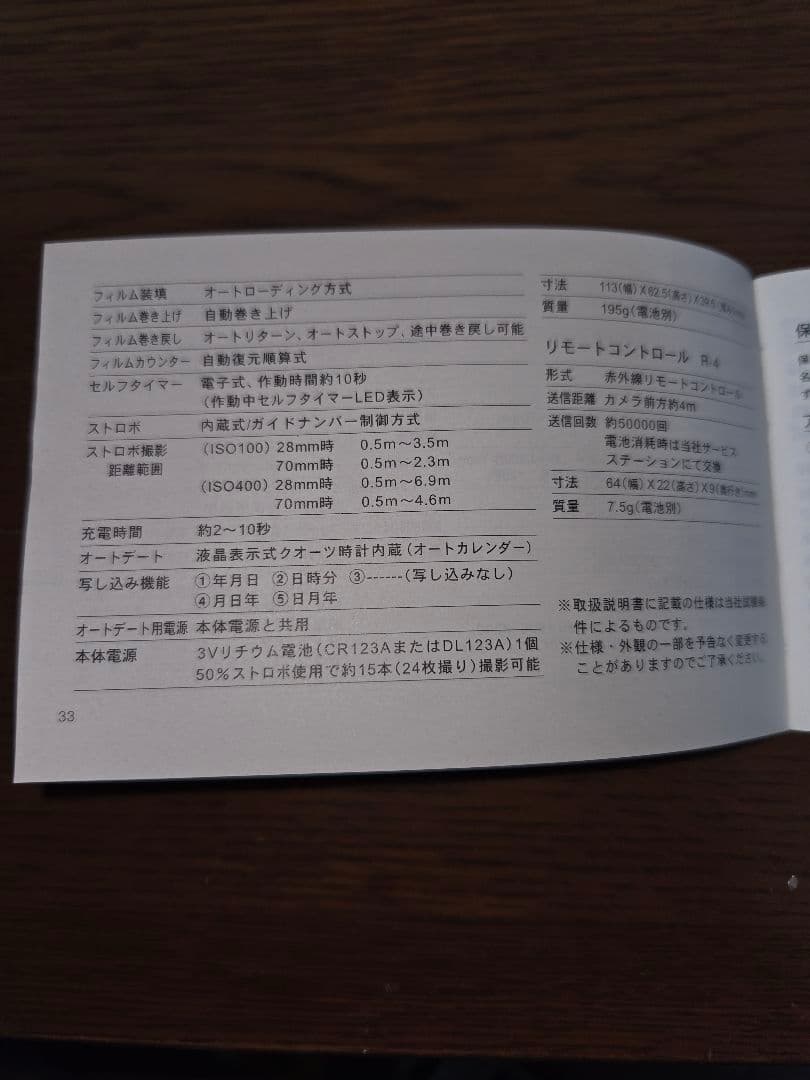 フィルム装填 オートローディング方式
フィルム巻き上げ 自動巻き上げ
フィルム巻き戻し オートリターン、オートストップ、途中巻き戻し可能
フィルムカウンター 自動復元順算式
セルフタイマー 電子式、作動時間約10秒
(作動中セルフタイマーLED表示)
ストロボ 内蔵式/ガイドナンバー制御方式
ストロボ撮影 (ISO100) 28mm時 0.5m〜3.5m
距離範囲 70mm時 0.5m〜2.3m
(ISO400) 28mm時 0.5m〜6.9m
70mm時 0.5m〜4.6m
充電時間 約2〜10秒
オートデート 液晶表示式クオーツ時計内蔵(オートカレンダー)
写し込み機能 ①年月日 ②日時分 ③------(写し込みなし)
④月日年 ⑤日月年
オートデート用電源 本体電源と共用
本体電源 3Vリチウム電池(CR123AまたはDL123A)1個
50%ストロボ使用で約15本(24枚撮り)撮影可能
33
寸法 113(幅)X62.5(高さ)X39.5
質量 195g(電池別)
リモートコントロール R-4
形式 赤外線リモートコントロール
送信距離 カメラ前方約4m
送信回数 約50000回
電池消耗時は当社サービス
ステーションにて交換
寸法 64(幅)X22(高さ)X9(奥行き)mm
質量 7.5g(電池別)
※取扱説明書に記載の仕様は当社試験条
件によるものです。
※仕様・外観の一部を予告なく変更する
ことがありますのでご了承ください。
保